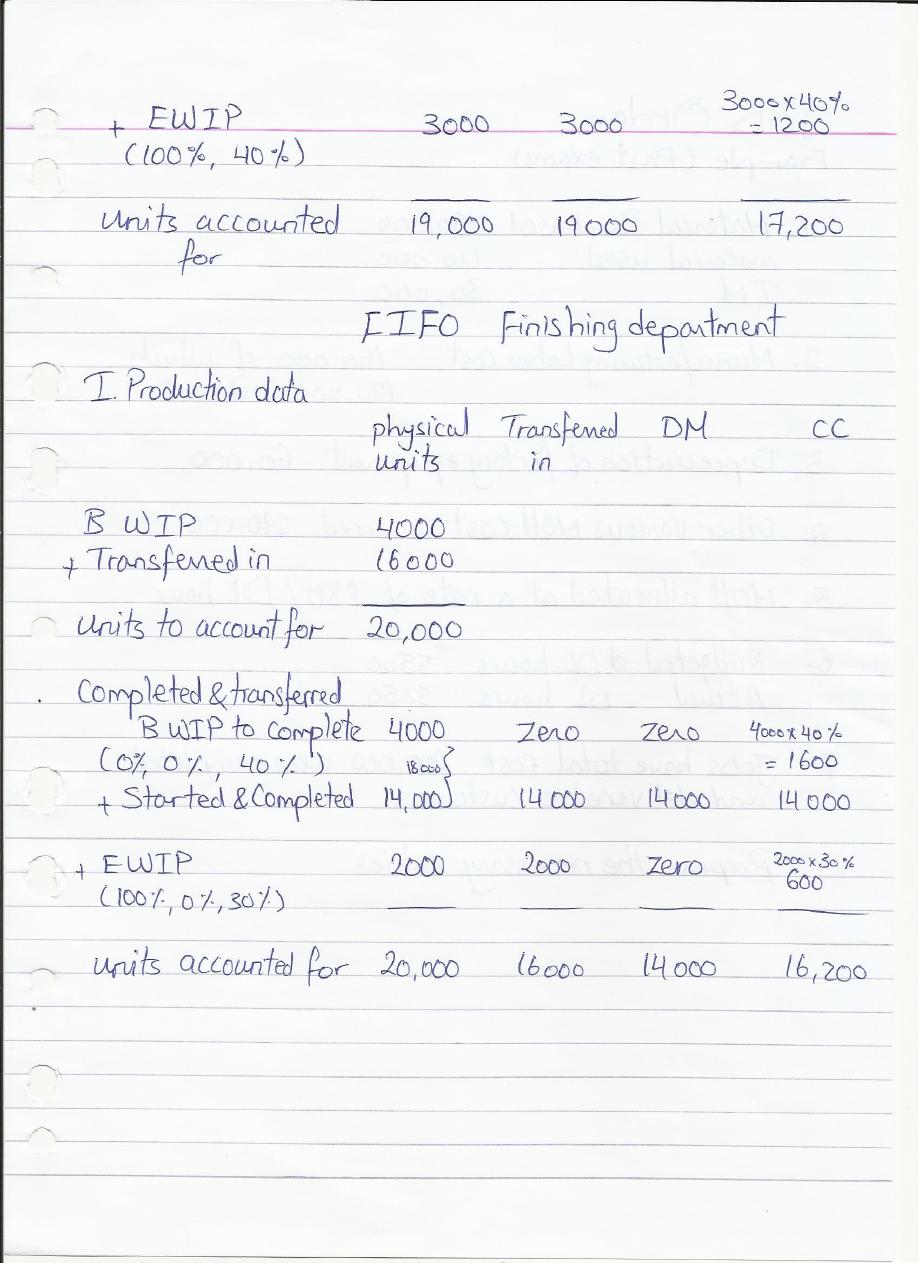 3000 x 40%
+ EWIP 3000 3000 = 1200
(100%, 40%)
Units accounted 19,000 19000 17,200
for
FIFO Finishing department
I. Production data
physical Transferred DM CC
units in
B WIP 4000
+ Transferred in 16000
Units to account for 20,000
Completed & transferred
B WIP to complete 4000 Zero Zero 4000 x 40%
(0%, 0%, 40%) 18000 = 1600
+ Started & Completed 14,000 14000 14000 14000
+ EWIP 2000 2000 Zero 2000 x 30%
(100%, 0%, 30%) 600
Units accounted for 20,000 16000 14000 16,200